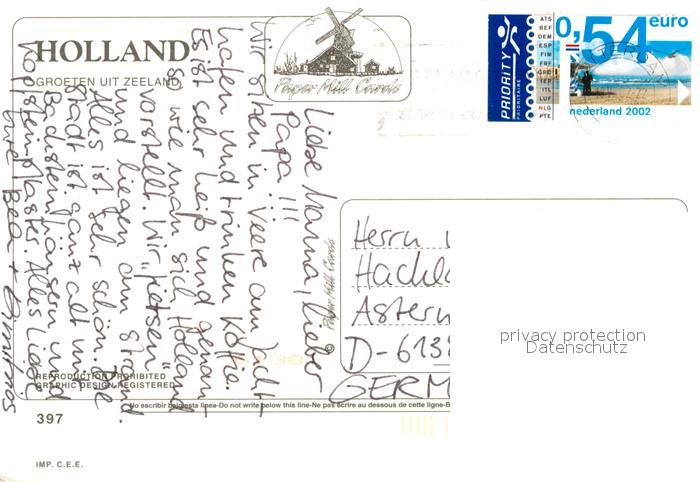 HOLLAND
GROETEN UIT ZEELAND
Paper Mill Cards
PRIORITY
PRIORITAIRE
ATS
BEF
DEM
ESP
FIM
FRF
GRD
IEP
ITL
LUF
NLG
PTE
0,54 euro
nederland 2002
Liebe Mamma, lieber
Papa!!!
Wir sitzen in Veere am Jacht
hafen und trinken Koffie.
Es ist sehr heiß und genau
so wie man sich Holland
vorstellt. Wir "fietsen"
und liegen am Strand.
Alles ist sehr schön. Die
Stadt ist ganz alt mit
Backsteinhäusern und
Kopfsteinpflaster. Alles Liebe
Eure Bea +
Paper Mill Cards
Herrn
Hackl
Astern
D-613
GERM
privacy protection
Datenschutz
REPRODUCTION PROHIBITED
GRAPHIC DESIGN REGISTERED
No escribir bajo esta linea-Do not write below this line-Ne pas écrire au dessous de cette ligne-B
397
IMP. C.E.E.